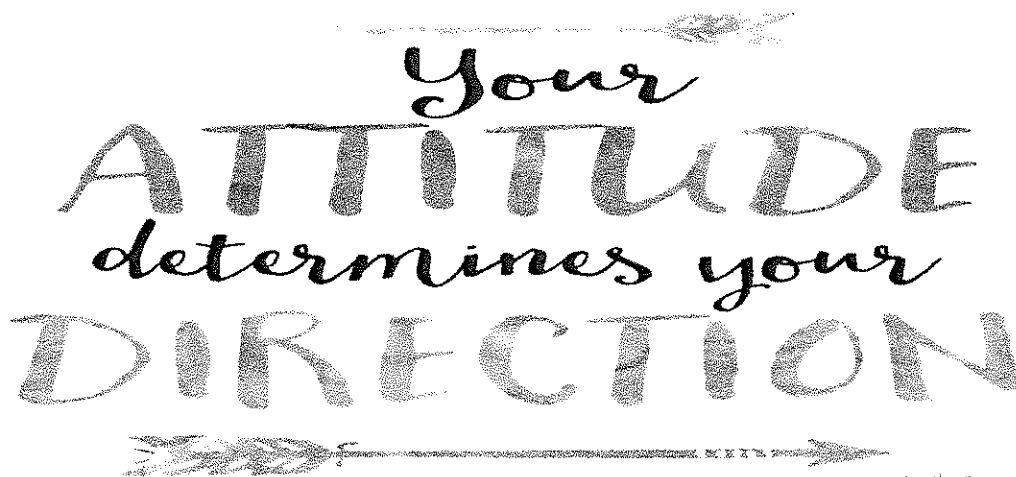 Your
ATTITUDE
determines your
DIRECTION